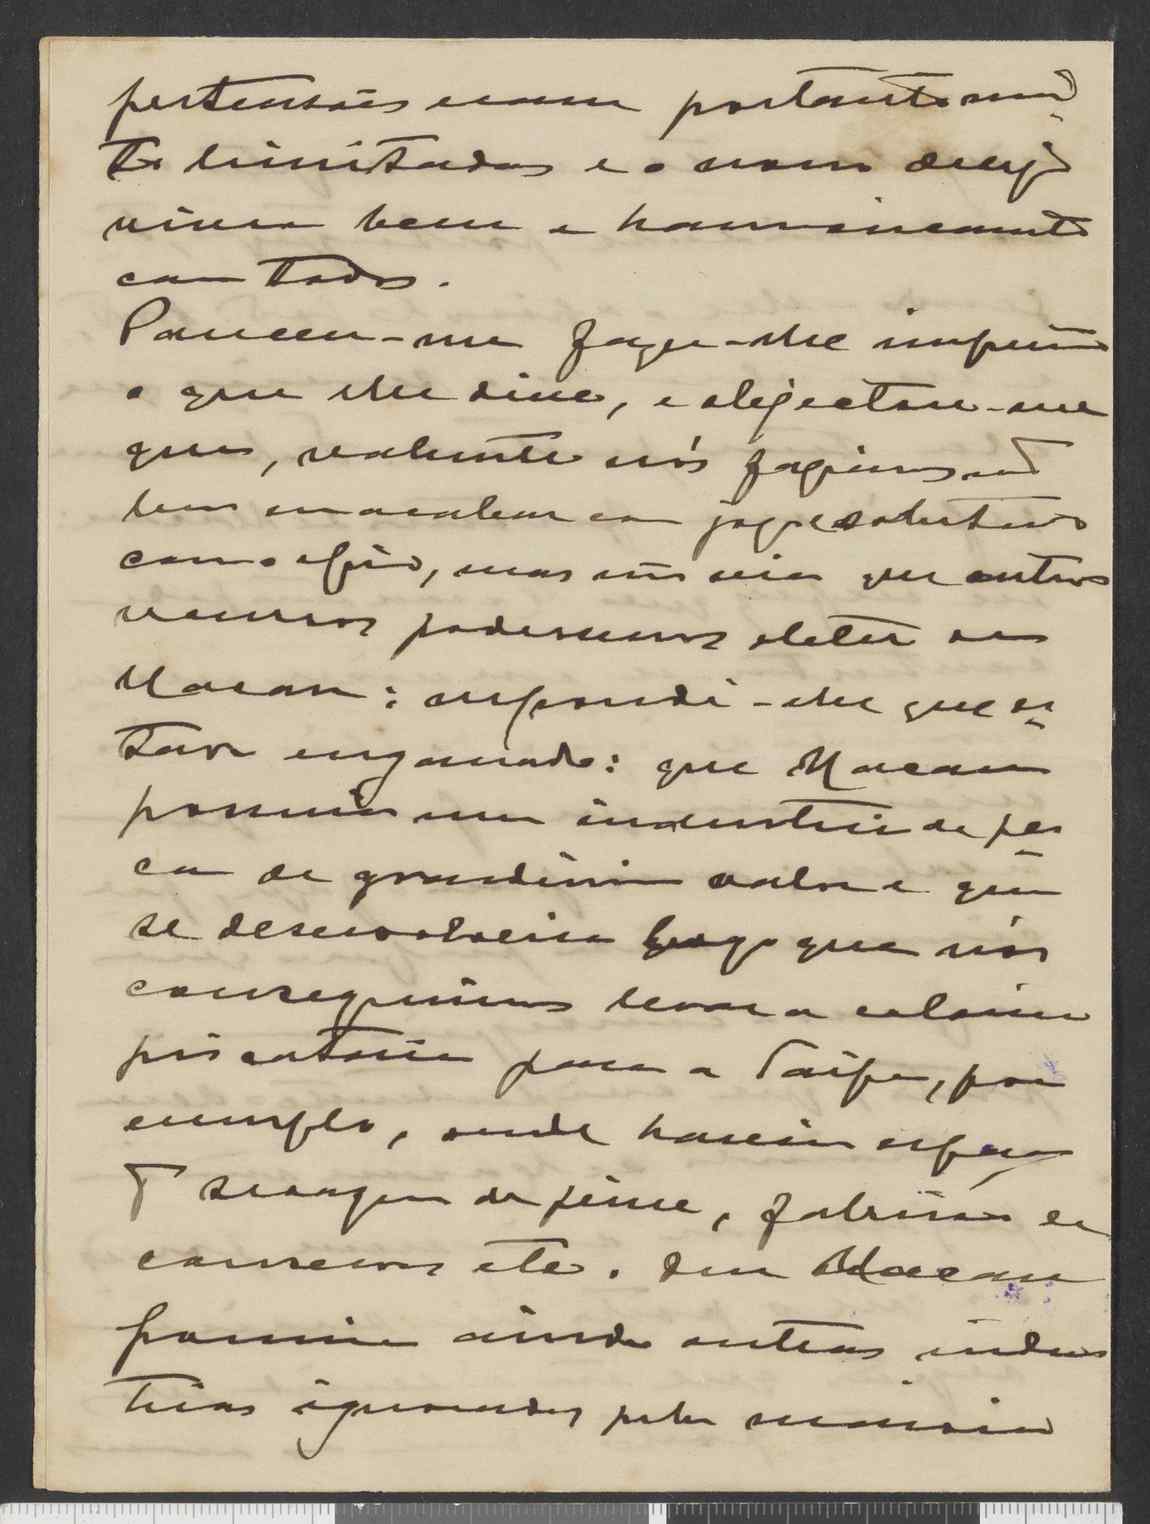 pertensões eram portanto mui
to limitadas e o nosso desejo
viver bem e harmonicamente
com todos.
Pareceu-me fazer-lhe impressão
o que lhe disse, e objectou-me
que, realmente nós faziamos
bem em acabar com jogo e
com o opio, mas não via que outros
recursos podessemos obter em
Macau: respondi-lhe que es
tava enganado: que Macau
possuia uma industria de pes
ca de grandissimo valor e que
se desenvolveria logo que nós
conseguissemos levar a colonia
piscatoria para a Taipa, por
exemplo, onde haveria espaço
pª seccagem de peixe, fabricas de
conservas etc. Que Macau
possuia ainda outras indus
trias ignoradas pela maioria